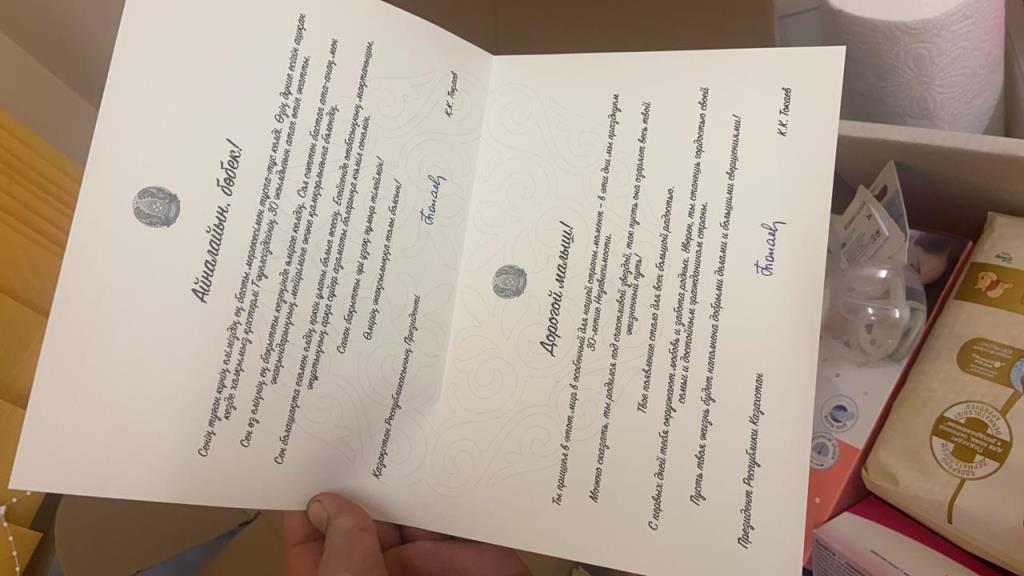 Айналайын, бөбек!
Сенің туған күнің еліміздің ең басты мерекесімен тұспа-тұс келді. Өзің дүние есігін ашқан
кезде халқымыз Тәуелсіздіктің 30 жылдығын атап өтіп жатты.
Сен өз ең бақытты кезеңінде өмірге келдің. Осы сәттен бастап ата-анаң мен
жақындарыңның мейірімі қамқорлығына бөлендің.
Сен болашақта
Саған бақытты әрі ұзақ ғұмыр тілеймін!
Өмірің жақсылыққа толы болсын!
Қазақстан Республикасының Президенті К.К. Тоқаев
Дорогой малыш!
Ты пришел в этот мир в особенный для нашей страны момент – в эти дни мы празднуем
30-летие Независимости.
Можно сказать, ты родился под счастливой звездой, так пусть она озаряет весь твой
жизненный путь!
Твое появление стало для всех большой радостью.
С первых дней тебя окружают любовь и забота родных. Уверен, ты станешь гордостью своей
семьи и достойным гражданином страны.
Пусть твоя жизнь будет наполнена добрыми делами и большими свершениями!
Президент Республики Казахстан К.К. Токаев